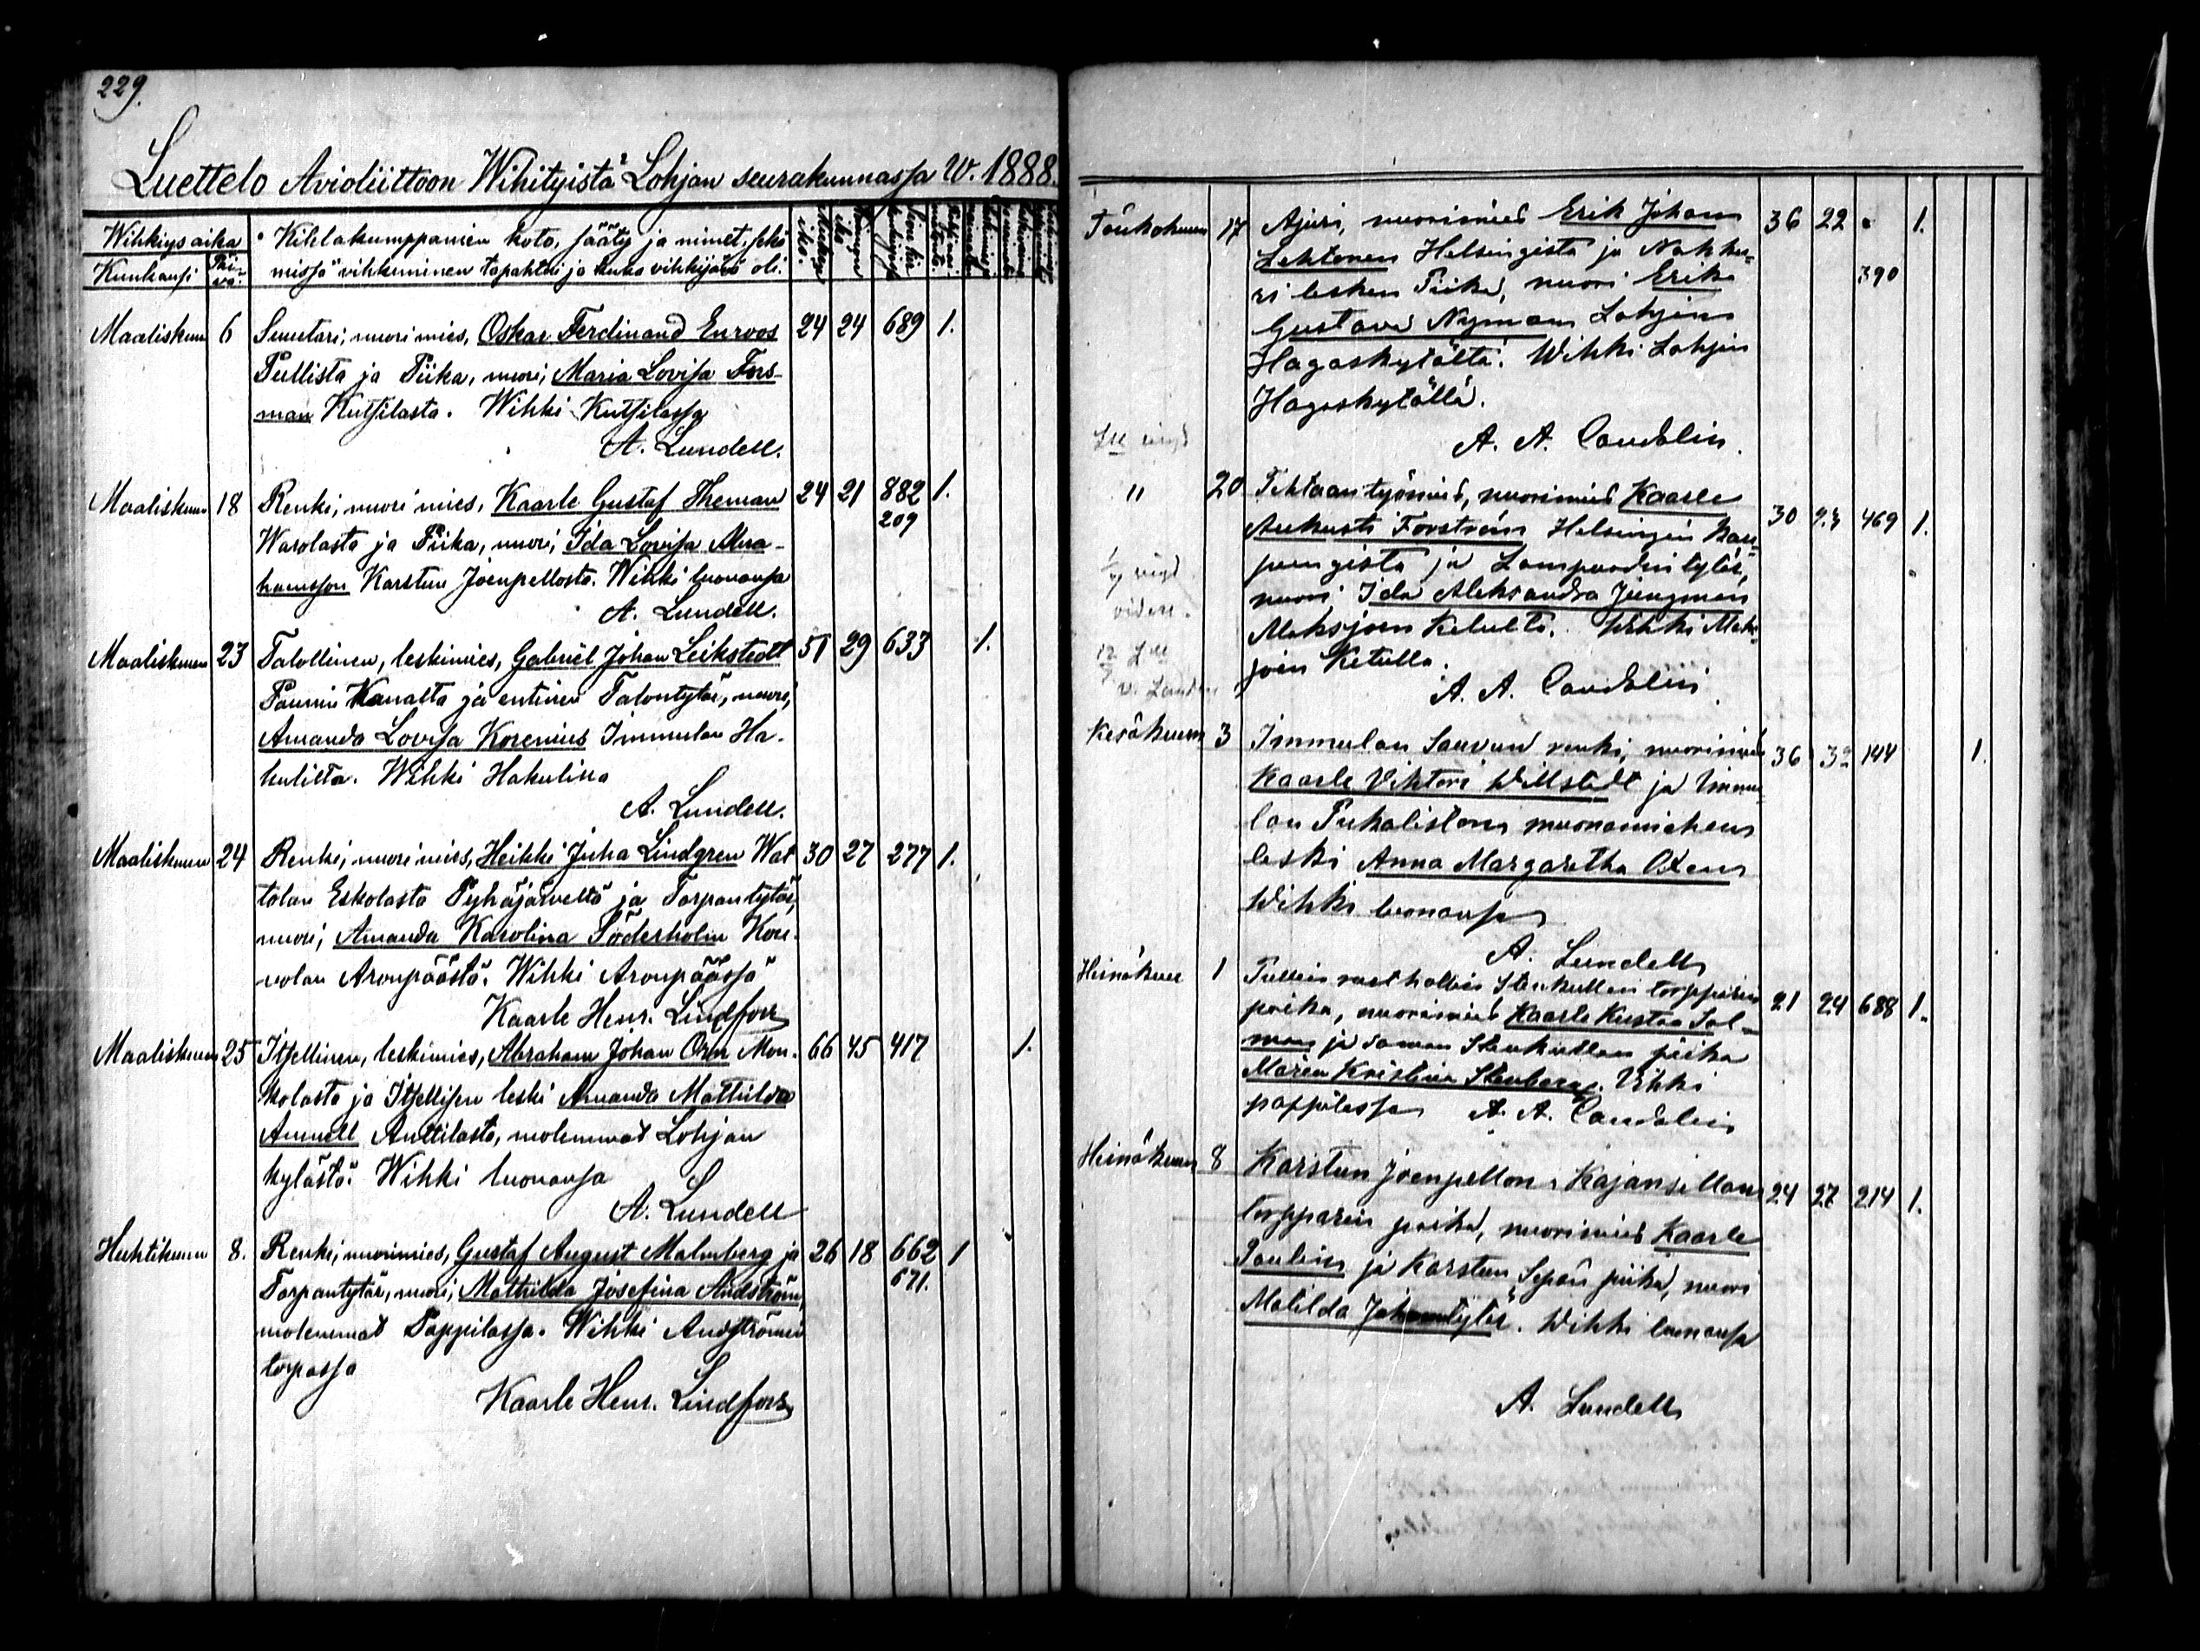 229.
Luettelo Avioliittoon Wihityistä Lohjan seurakunnassa w. 1888.
Wihkiys aika
Kuukausi Päivä.
Kihlakumppanien koto, sääty ja nimet, sekä
missä vihkiminen tapahtui ja kuka vihkijänä oli.
Maaliskuun 6 Suutari, nuori mies, Oskar Ferdinand Enroos 24 24 689 1.
Pullista ja Piika, nuori, Maria Lovisa Fors-
man Kutsilasta. Wihki Kutsilassa
A. Lundell.
Maaliskuun 18 Renki, nuori mies, Kaarle Gustaf Theman 24 21 882 1.
209
Warolasta ja Piika, nuori, Ida Lovisa Abra-
hamsson Karstun Joenpellosta. Wihki luonansa
A. Lundell.
Maaliskuun 23 Talollinen, leskimies, Gabriel Johan Leikstedt 51 29 633 1.
Paunin ja entinen Talontytär, nuori,
Amanda Lovisa Korenius Immulan Ha-
kulilta. Wihki Hakulina
A. Lundell.
Maaliskuun 24 Renki, nuori mies, Heikki Juha Lindgren Wat 30 27 277 1.
tolan Eskolasta Pyhäjärveltä ja Torpantytär,
nuori, Amanda Karolina Söderholm Kou-
volan Aronpäästä. Wihki Aronpäässä
Kaarle Henr. Lindfors
Maaliskuun 25 Itsellinen, leskimies, Abraham Johan Orn Mon- 66 45 417 1.
kolasta ja Itsellisen leski Amanda Mathilda
Anttilasta, molemmat Lohjan
kylästä. Wihki luonansa
A. Lundell
Huhtikuun 8. Renki, nuorimies, Gustaf August Malmberg ja 26 18 662 1
671.
Torpantytär, nuori, Mathilda Josefina Andström,
molemmat Pappilassa. Wihki Andströmin
torpassa
Kaarle Henr. Lindfors
Toukokuun 17 Ajuri, nuorimies Erik Johan 36 22 1.
Lehtonen Helsingistä ja Nahku- 390
ri lesken Piika, nuori Erika
Gustava Nyman Lohjan
Hagaskytältä. Wihki Lohjan
Hagaskytällä.
A. A. Candolin.
" 20 Tehtaantyömies, nuorimies Kaarle
Aukusti Forström Helsingin kau- 30 23 469 1.
pungista ja Lampuodintytär,
nuori Ida Aleksandra Jungman
Maksjoen Ketulta. Wihki Maks-
joen Ketulla.
A. A. Candolin
Kesäkuun 3 Immulan renki, nuorimies 36 144 1.
Kaarle Viktori Willstedt ja Immu-
lan muonamiehen
leski Anna Margaretha Oxen
Wihki luonansa
A. Lundell
Heinäkuu 1 Pullin rusthollin Stenkullan torpparin
poika, nuorimies Kaarle Kustaa Sal- 21 24 688 1.
man ja saman Stenkullan piika
Maria Kristiina Stenberg. Vihki
pappilassa A. A. Candolin
Heinäkuun 8 Karstun Joenpellon Kajansillan 24 27 214 1.
torpparin poika, nuorimies Kaarle
Paulin ja Karstun Sepän piika, nuori
Matilda Johantytär. Wihki luonansa
A. Lundell